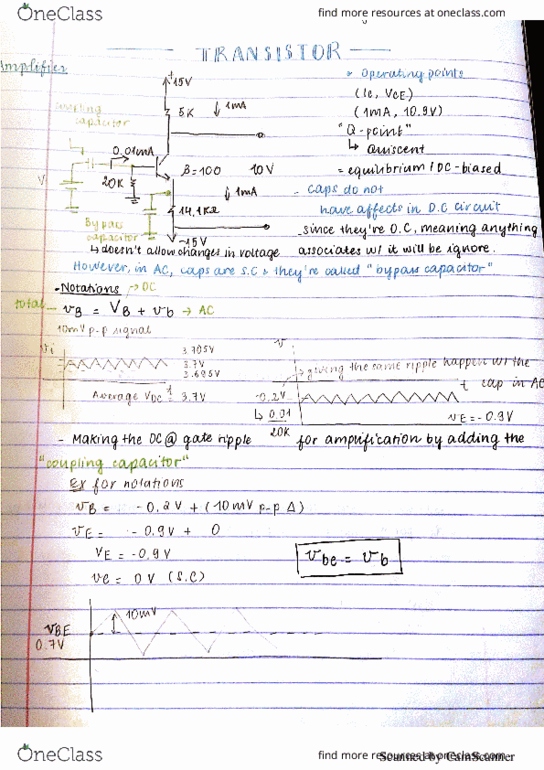 OneClass
find more resources at oneclass.com
TRANSISTOR
Amplifier
+15V
5K
1mA
coupling
capacitor
0.01mA
20K
β=100
10V
1mA
14.1KΩ
-15V
Bypass
capacitor
↳ doesn't allow changes in voltage
> Operating points
(Ic, VCE)
(1mA, 10.9V)
"Q-point"
↳ Quiscent
= equilibrium / DC-biased
- caps do not
have affects in D.C circuit
since they're O.C, meaning anything
associates w/ it will be ignore.
However, in AC, caps are S.C & they're called "bypass capacitor"
- Notations
→ DC
total
vB = VB + vb → AC
10mV p-p signal
vi
3.705V
3.7V
3.695V
Average VDC = 3.7V
v
giving the same ripple happen w/ the
t cap in AC
-0.2V
↳ 0.01
20K
vE = -0.9V
- Making the DC @ gate ripple for amplification by adding the
"coupling capacitor"
Ex for notations
vB = -0.2V + (10mV p-p Δ)
vE = -0.9V + 0
VE = -0.9V
ve = 0V (S.C)
vbe = vb
10mV
vBE
0.7V
OneClass
find more resources at oneclass.com
Scanned by CamScanner